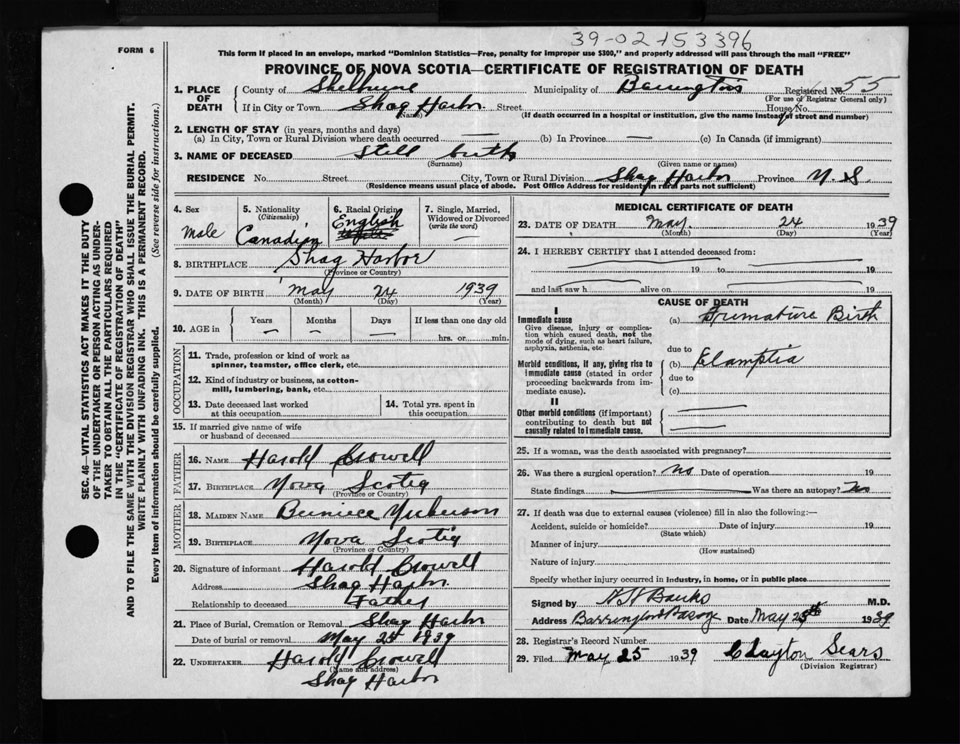 39-02-153396
FORM 6
This form if placed in an envelope, marked "Dominion Statistics—Free, penalty for improper use $300," and properly addressed will pass through the mail "FREE"
PROVINCE OF NOVA SCOTIA—CERTIFICATE OF REGISTRATION OF DEATH
1. PLACE OF DEATH County of Shelburne Municipality of Barrington Registered No. 55
(For use of Registrar General only)
If in City or Town Shag Harbor Street House No.
(Name) (If death occurred in a hospital or institution, give the name instead of street and number)
2. LENGTH OF STAY (in years, months and days)
(a) In City, Town or Rural Division where death occurred — (b) In Province — (c) In Canada (if immigrant)
3. NAME OF DECEASED Still birth
(Surname) (Given name or names)
RESIDENCE No. Street City, Town or Rural Division Shag Harbor Province N.S.
(Residence means usual place of abode. Post Office Address for residents in rural parts not sufficient)
4. Sex Male
5. Nationality (Citizenship) Canadian
6. Racial Origin English
7. Single, Married, Widowed or Divorced (write the word) —
8. BIRTHPLACE Shag Harbor
(Province or Country)
9. DATE OF BIRTH May 24 1939
(Month) (Day) (Year)
10. AGE in Years Months Days If less than one day old
hrs. or min.
OCCUPATION
11. Trade, profession or kind of work as spinner, teamster, office clerk, etc.
12. Kind of industry or business, as cotton-mill, lumbering, bank, etc.
13. Date deceased last worked at this occupation
14. Total yrs. spent in this occupation
15. If married give name of wife or husband of deceased
FATHER
16. NAME Harold Crowell
17. BIRTHPLACE Nova Scotia
(Province or Country)
MOTHER
18. MAIDEN NAME Berniece Nickerson
19. BIRTHPLACE Nova Scotia
(Province or Country)
20. Signature of informant Harold Crowell
Address Shag Harbor
Relationship to deceased Father
21. Place of Burial, Cremation or Removal Shag Harbor
Date of burial or removal May 25 1939
22. UNDERTAKER Harold Crowell
(Name and address)
Shag Harbor
MEDICAL CERTIFICATE OF DEATH
23. DATE OF DEATH May 24 1939
(Month) (Day) (Year)
24. I HEREBY CERTIFY that I attended deceased from:
19 to 19
and last saw h alive on 19
CAUSE OF DEATH
I
Immediate cause (a) Premature Birth
Give disease, injury or complication which caused death, not the mode of dying, such as heart failure, asphyxia, asthenia, etc.
due to
Morbid conditions, if any, giving rise to immediate cause (stated in order proceeding backwards from immediate cause).
(b) Elamptia
due to
(c)
II
Other morbid conditions (if important) contributing to death but not causally related to immediate cause.
25. If a woman, was the death associated with pregnancy?
26. Was there a surgical operation? no Date of operation 19
State findings Was there an autopsy? no
27. If death was due to external causes (violence) fill in also the following:—
Accident, suicide or homicide? Date of injury 19
(State which)
Manner of injury
(How sustained)
Nature of injury
Specify whether injury occurred in industry, in home, or in public place
Signed by Banks M.D.
Address Barrington Passage Date May 25th 1939
28. Registrar's Record Number
29. Filed May 25 1939 Clayton Sears
(Division Registrar)
SEC. 46—VITAL STATISTICS ACT MAKES IT THE DUTY
OF THE UNDERTAKER OR PERSON ACTING AS UNDER-
TAKER TO OBTAIN ALL THE PARTICULARS REQUIRED
IN THE "CERTIFICATE OF REGISTRATION OF DEATH"
AND TO FILE THE SAME WITH THE DIVISION REGISTRAR WHO SHALL ISSUE THE BURIAL PERMIT.
WRITE PLAINLY WITH UNFADING INK. THIS IS A PERMANENT RECORD.
Every item of information should be carefully supplied. (See reverse side for instructions.)